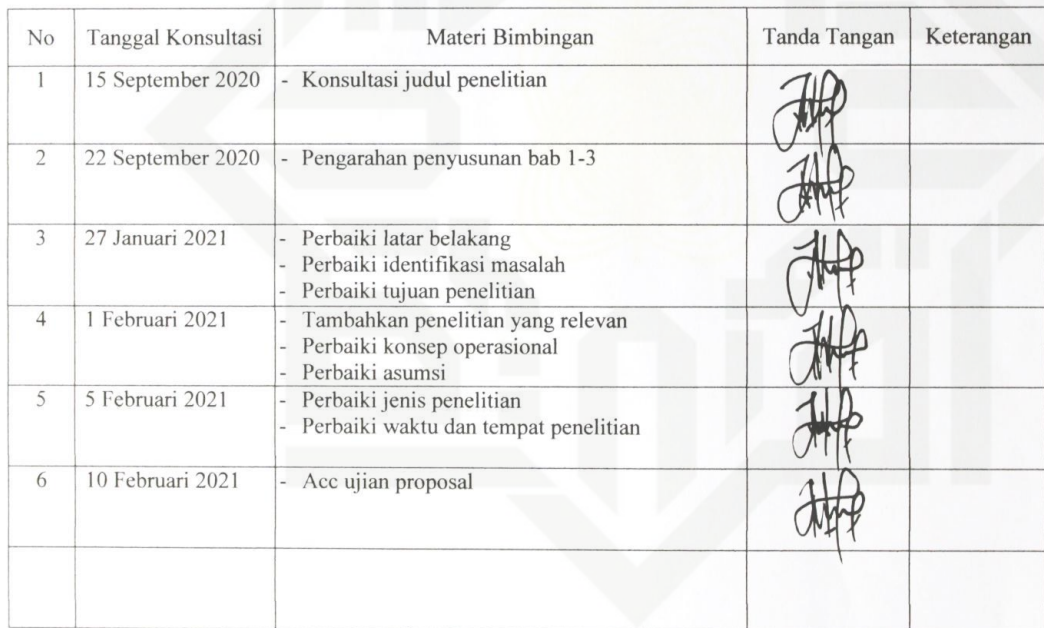 No Tanggal Konsultasi Materi Bimbingan Tanda Tangan Keterangan
1 15 September 2020 - Konsultasi judul penelitian
2 22 September 2020 - Pengarahan penyusunan bab 1-3
3 27 Januari 2021 - Perbaiki latar belakang
- Perbaiki identifikasi masalah
- Perbaiki tujuan penelitian
4 1 Februari 2021 - Tambahkan penelitian yang relevan
- Perbaiki konsep operasional
- Perbaiki asumsi
5 5 Februari 2021 - Perbaiki jenis penelitian
- Perbaiki waktu dan tempat penelitian
6 10 Februari 2021 - Acc ujian proposal